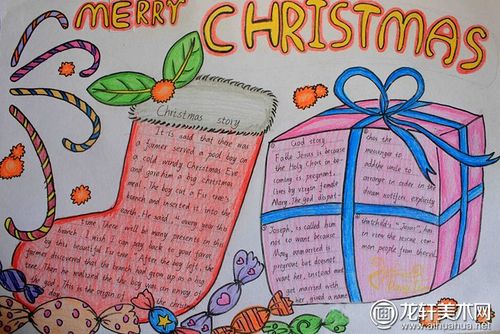 MERRY CHRISTMAS
Christmas story
It is said that there was
a farmer served a poor boy on
a cold windy Christmas Eve
and gave him a big christmas
meal. The boy cut a Fir tree's
branch and inserted it into the
earth. He said "every year this
time, there will be many presents in this
branch, I wish I can pay back to your favor
by this beautiful Fir tree. After the boy left, the
farmer discovered that the branch had grown up as a big
tree. Then he realized the boy was an envoy of
god. This is the origin of the christ
day
God story
Fake Jesus is because
the Holy Ghost in be-
coming is pregnant.
lives by virgin female
Mary. The god dispat-
ches the
messenger to
addble smile to
arrange in order in the
dream notifiers explicitly
Joseph, is called him
not so want because
Mary unmarried is
pregnant but doesnot
want her, instead must
get married with
her, gived a name
this child's "Jesus", has
in view the rescue, com-
mon people from there
龙轩美术网
www.aihuahua.net